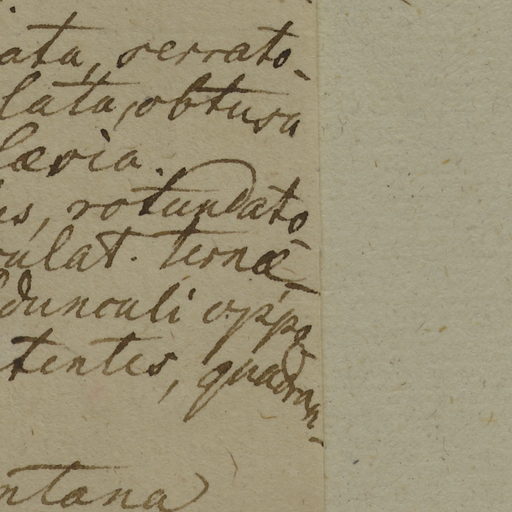 ata, serrato-
lata, obtusa
læria.
is, rotundato
ulat. ternæ-
dunculi oppo-
tentes, quadran-
ntana